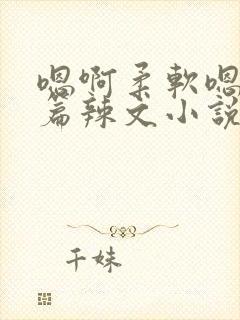 嗯啊柔軟嗯
篇辣文小說
千妹